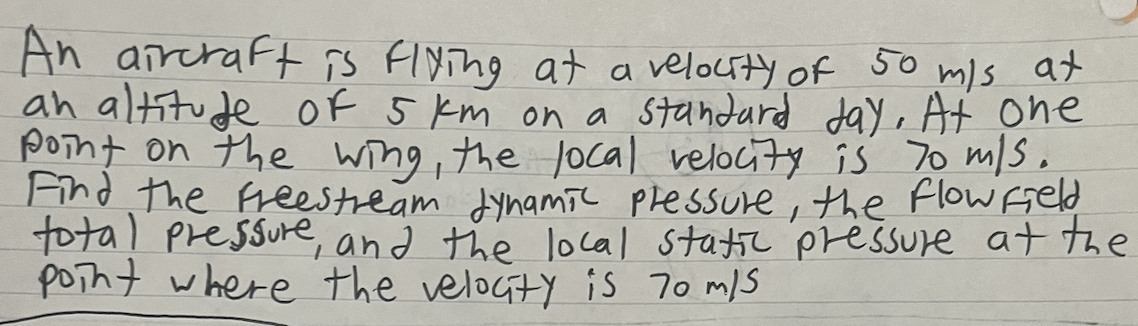 An aircraft is flying at a velocity of 50 m/s at
an altitude of 5 km on a standard day. At one
point on the wing, the local velocity is 70 m/s.
Find the freestream dynamic pressure, the flowfield
total pressure, and the local static pressure at the
point where the velocity is 70 m/s